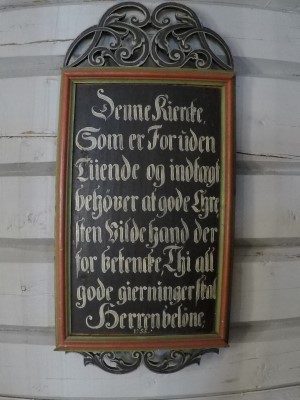 Denne Kiercke,
Som er Foruden
Tiiende og indtægt
behöver at gode Chre,
sten Vilde Haand der
for betencke, Thi all
gode gierninger skal
Herren belöne,